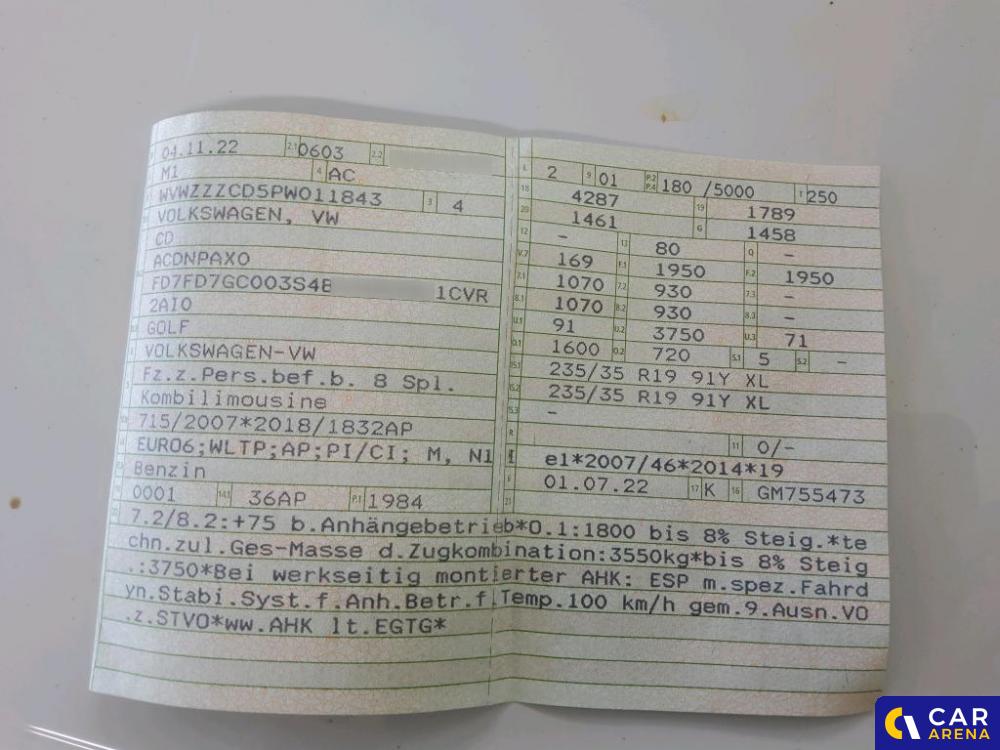 04.11.22 2.1 0603 2.2
M1 4 AC
WVWZZZCD5PW011843 3 4
VOLKSWAGEN, VW
CD
ACDNPAX0
FD7FD7GC003S48 1CVR
2AI0
GOLF
VOLKSWAGEN-VW
Fz.z.Pers.bef.b. 8 Spl.
Kombilimousine
715/2007*2018/1832AP
EURO6;WLTP;AP;PI/CI; M, N1 I
Benzin
0001 14.1 36AP P.1 1984
L 2 9 01 P.2 P.4 180 /5000 T 250
18 4287 19 1789
20 1461 G 1458
12 - 13 80 Q -
V.7 169 F.1 1950 F.2 1950
7.1 1070 7.2 930 7.3 -
8.1 1070 8.2 930 8.3 -
U.1 91 U.2 3750 U.3 71
O.1 1600 O.2 720 S.1 5 S.2 -
15.1 235/35 R19 91Y XL
15.2 235/35 R19 91Y XL
15.3 -
R 11 0/-
e1*2007/46*2014*19
6 01.07.22 17 K 16 GM755473
21
22 7.2/8.2:+75 b.Anhängebetrieb*O.1:1800 bis 8% Steig.*te
chn.zul.Ges-Masse d.Zugkombination:3550kg*bis 8% Steig
.:3750*Bei werkseitig montierter AHK: ESP m.spez.Fahrd
yn.Stabi.Syst.f.Anh.Betr.f.Temp.100 km/h gem.9.Ausn.VO
.z.STVO*ww.AHK lt.EGTG*
CAR
ARENA